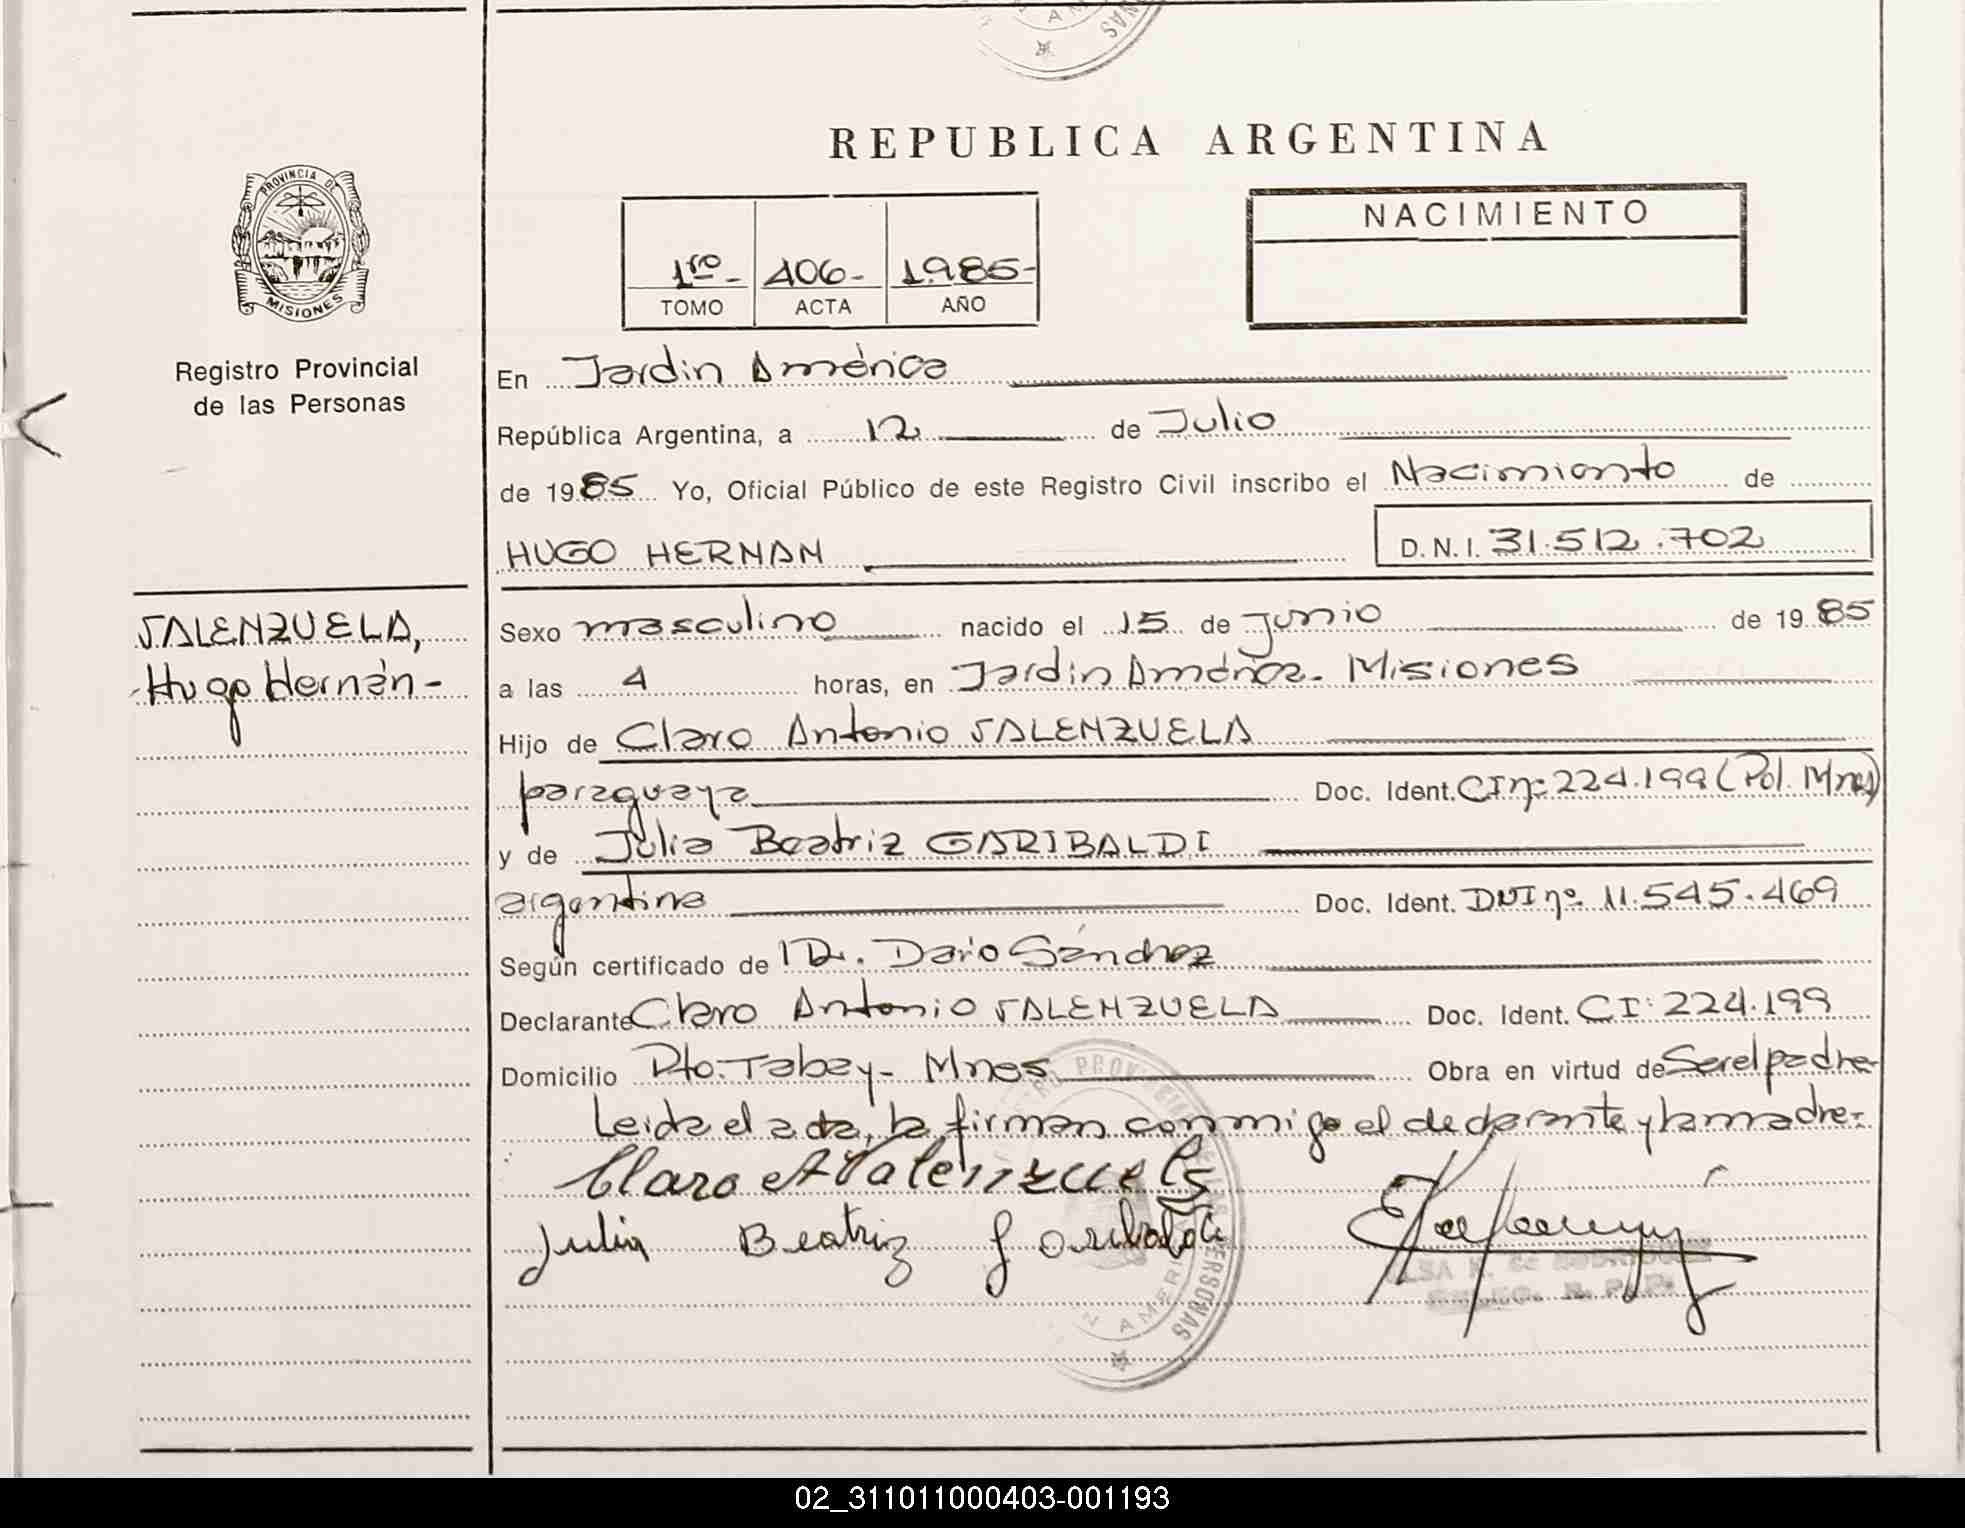 N AM NAS
REPUBLICA ARGENTINA
PROVINCIA DE
MISIONES
Registro Provincial
de las Personas
NACIMIENTO
1ro- 406- 1.985-
TOMO ACTA AÑO
En Jardín América
República Argentina, a 12 de Julio
de 1985 Yo, Oficial Público de este Registro Civil inscribo el Nacimiento de
HUGO HERNAN D.N.I. 31.512.702
VALENZUELA,
Hugo Hernán-
Sexo masculino nacido el 15 de junio de 1985
a las 4 horas, en Jardín América- Misiones
Hijo de Claro Antonio VALENZUELA
paraguaya Doc. Ident. CI nº 224.199 (Pol. Mnes)
y de Julia Beatriz GARIBALDI
argentina Doc. Ident. DNI nº 11.545.469
Según certificado de Dr. Darío Sánchez
Declarante Claro Antonio VALENZUELA Doc. Ident. CI: 224.199
Domicilio Pto. Tabay- Mnes Obra en virtud de Ser el padre-
Leida el acta, la firman conmigo el declarante y la madre-
Claro A Valenzuela
Julia Beatriz Garibaldi
PERSONAS
02_311011000403-001193